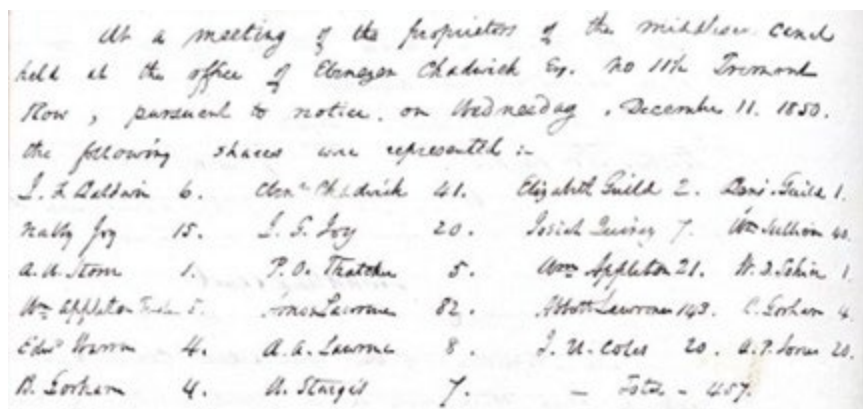 At a meeting of the proprietors of the Middlesex Canal
held at the office of Ebenezer Chadwick Esq. No 11½ Tremont
Row, pursuant to notice, on Wednesday, December 11. 1850.
the following shares were represented :-
J. F. Baldwin 6. Ebenr Chadwick 41. Elizabeth Guild 2. Benj. Guild 1.
Nabby Joy 15. J. G. Joy 20. Josiah Quincy 7. Wm Sullivan 40.
1. P. O. Thatcher 5. Wm Appleton 21. 1.
Wm Appleton 5. Lawrence 82. Abbott Lawrence 143. C. Gorham 4.
Edwd 4. A. A. Lawrence 8. J. U. Coles 20. 20.
B. Gorham 4. Sturgis 7. - Total - 457.